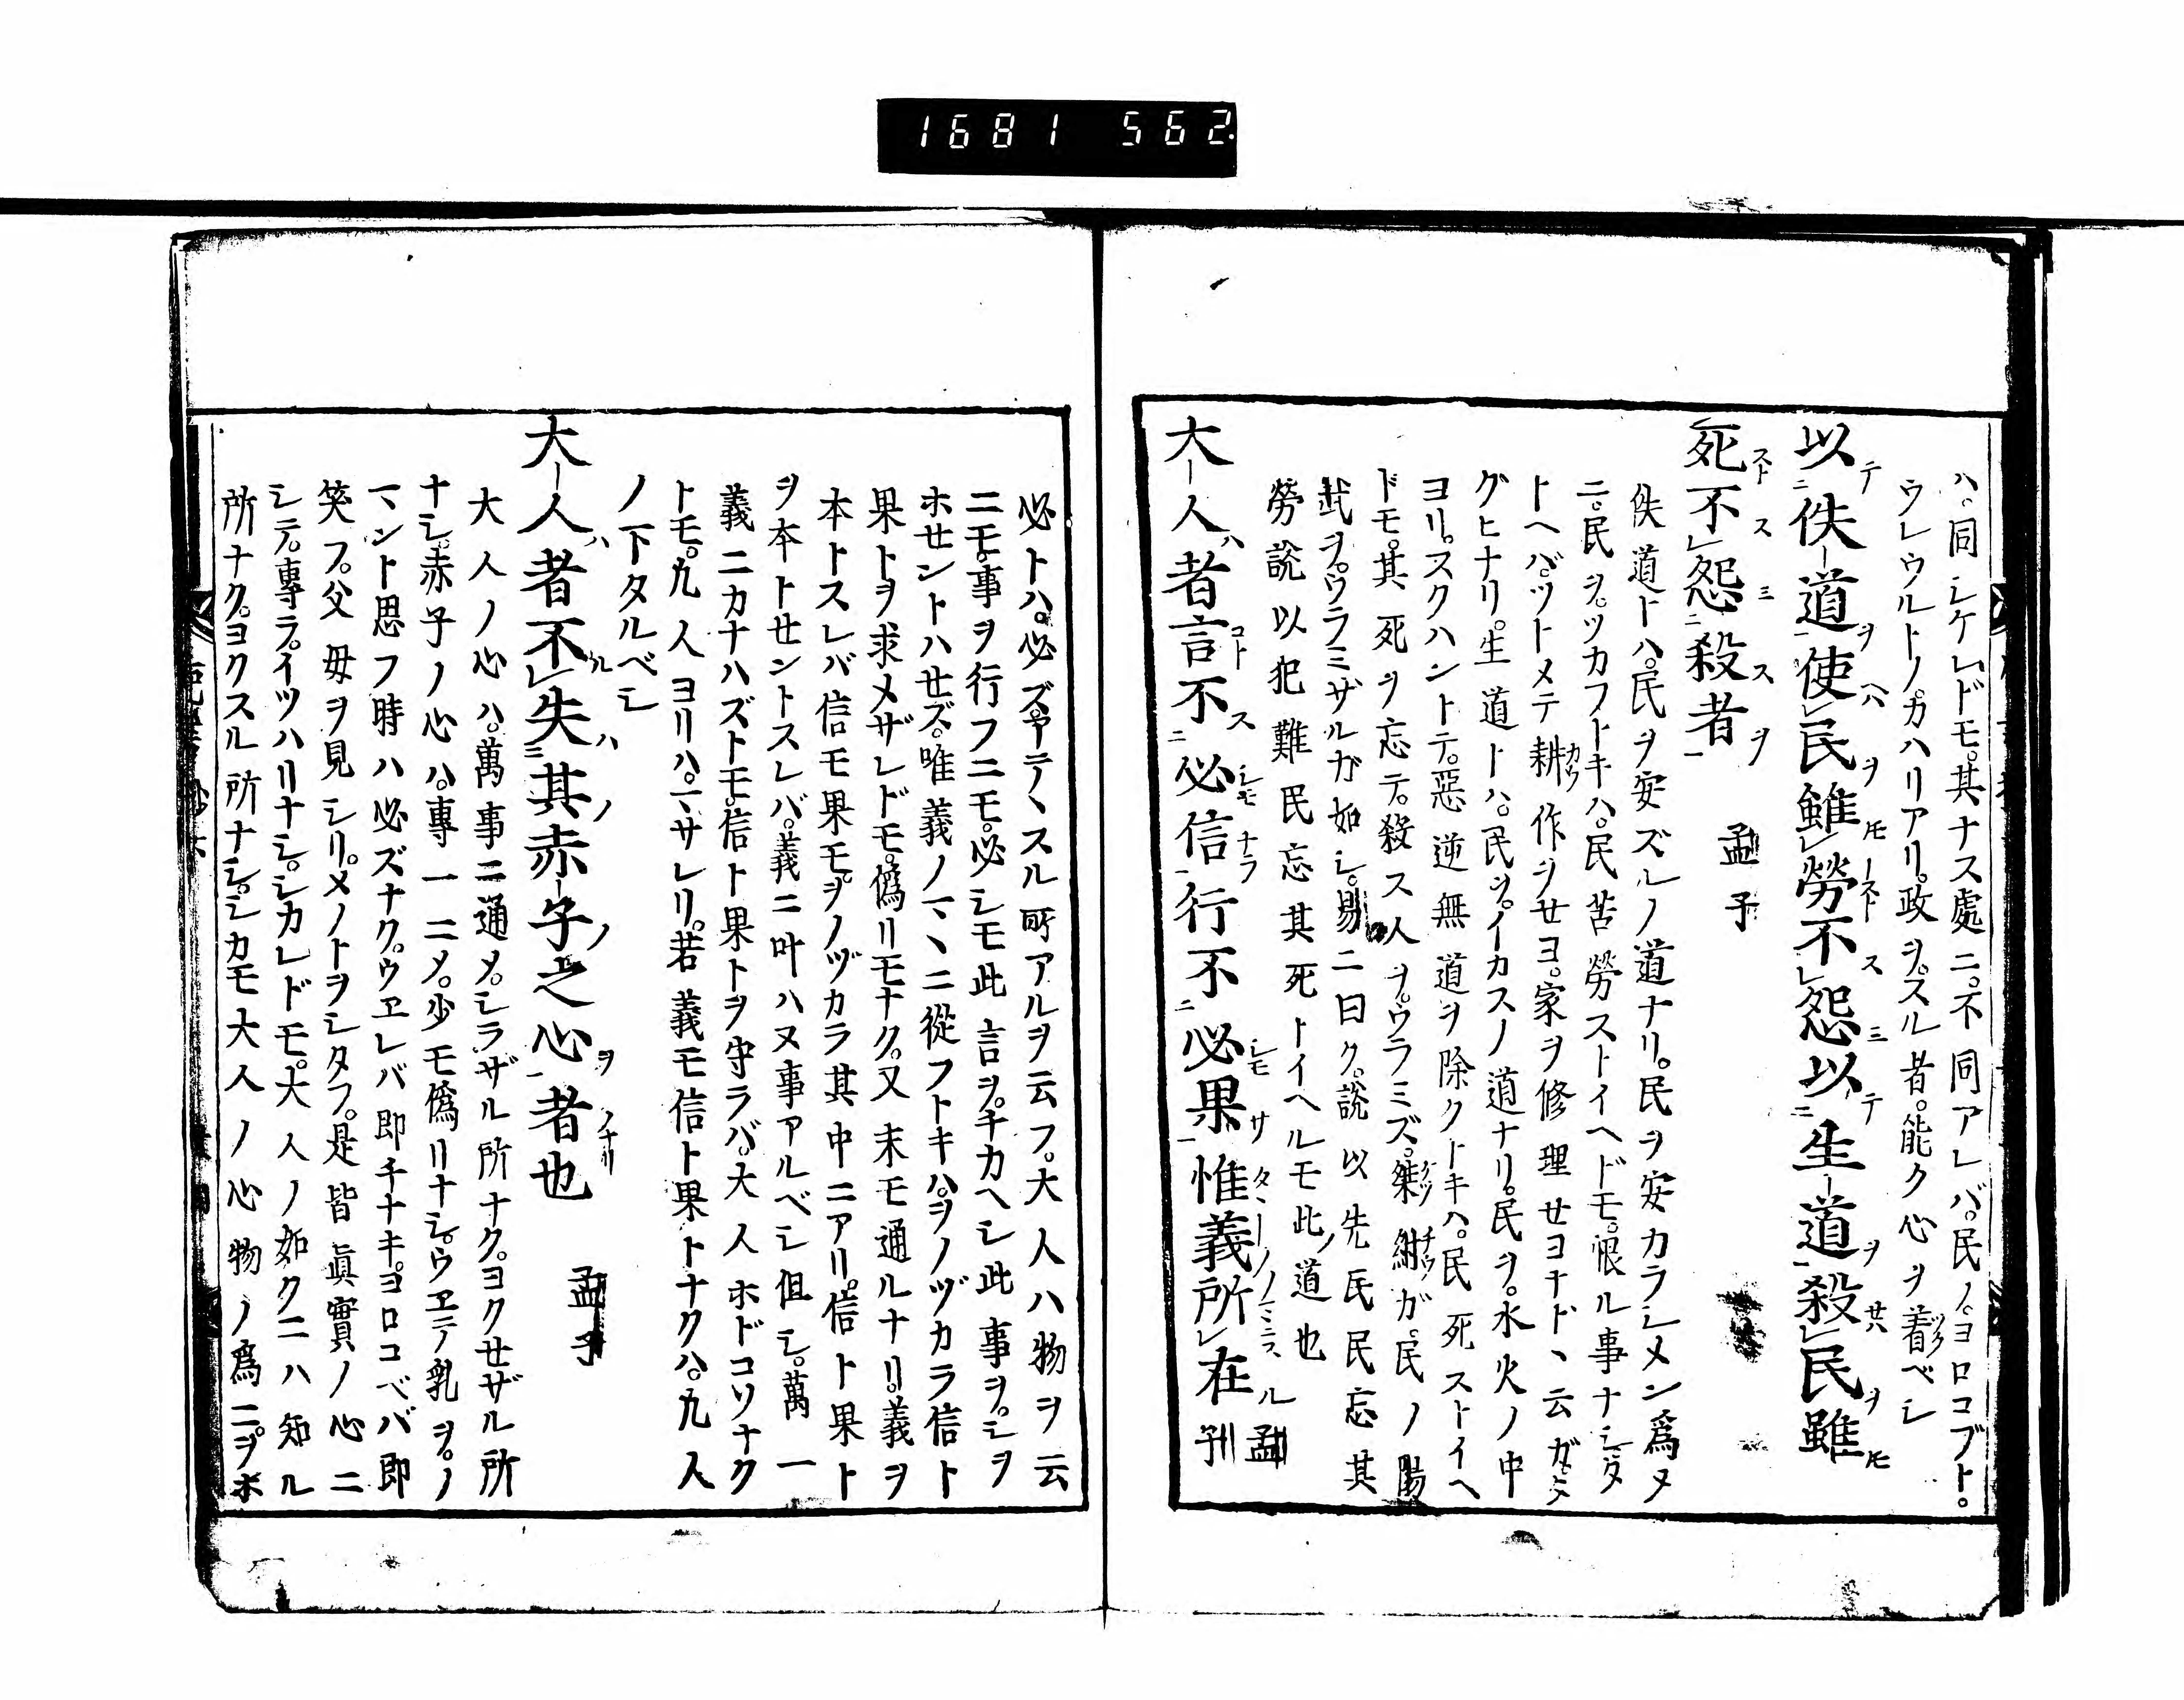 1681 562
ハ。同シケレドモ。其ナス處ニ。不同アレバ。民ノ。ヨロコブト。
ウレウルトノ。カハリアリ。政ヲ。スル者。能ク心ヲ着ベシ
以佚道使民雖勞不怨以生道殺民雖
死不怨殺者 孟子
佚道トハ。民ヲ安ズルノ道ナリ。民ヲ安カラシメン爲メ
ニ。民ヲ。ツカフトキハ。民苦勞ストイヘドモ。恨ル事ナシ。タ
トヘバ。ツトメテ耕作ヲセヨ。家ヲ修理セヨナド丶云ガタ
グヒナリ。生道トハ。民ヲ。イカスノ道ナリ。民ヲ。水火ノ中
ヨリ。スクハントテ。惡逆無道ヲ除クトキハ。民死ストイヘ
ドモ。其死ヲ忘テ。殺ス人ヲ。ウラミズ。桀紂ガ。民ノ湯
武ヲ。ウラミザルガ如シ。易ニ曰ク。說以先民民忘其
勞說以犯難民忘其死トイヘルモ此ノ道也
大人者言不必信行不必果惟義所在 孟子
必トハ。必ズヤテ丶スル所アルヲ云フ。大人ハ物ヲ云
ニモ。事ヲ行フニモ。必シモ此言ヲ。チカヘシ此事ヲ。シヲ
ホセントハセズ。唯義ノ一丶ニ從フトキハ。ヲノヅカラ信ト
果トヲ求メザレドモ。僞リモナク。又末モ通ルナリ。義ヲ
本トスレバ信モ果モ。ヲノヅカラ其中ニアリ。信ト果ト
ヲ本トセントスレバ。義ニ叶ハヌ事アルベシ但シ。萬一
義ニカナハズトモ。信ト果トヲ守ラバ。大人ホドコソナク
トモ。凢人ヨリハ。一丶サレリ。若義モ信ト果トナクハ。凢人
ノ下タルベシ
大人者不失其赤子之心者也 孟子
大人ノ心ハ。萬事ニ通メ。シラザル所ナク。ヨクセザル所
ナシ。赤子ノ心ハ。專一ニメ。少モ僞リナシ。ウヱテ乳ヲ。ノ
一丶ント思フ時ハ必ズナク。ウヱレバ即チナキ。ヨロコベバ即
笑フ。父母ヲ見シリ。メノトヲシタフ。是皆眞實ノ心ニ
シテ。專ラ。イツハリナシ。シカレドモ。大人ノ如クニハ知ル
所ナク。ヨクスル所ナシ。シカモ大人ノ心物ノ爲ニ。ヲホ